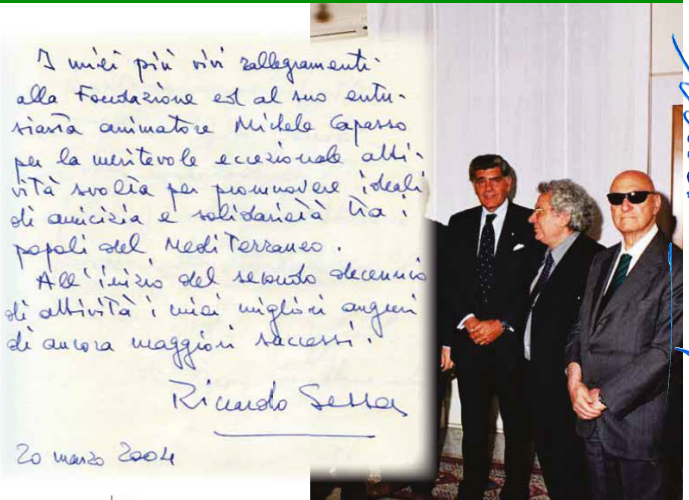 I miei più vivi rallegramenti
alla Fondazione ed al suo entu-
siasta animatore Michele Capasso
per la meritevole eccezionale atti-
vità svolta per promuovere ideali
di amicizia e solidarietà tra i
popoli del Mediterraneo.
All'inizio del secondo decennio
di attività i miei migliori auguri
di ancora maggiori successi.
Riccardo Sessa
20 marzo 2004